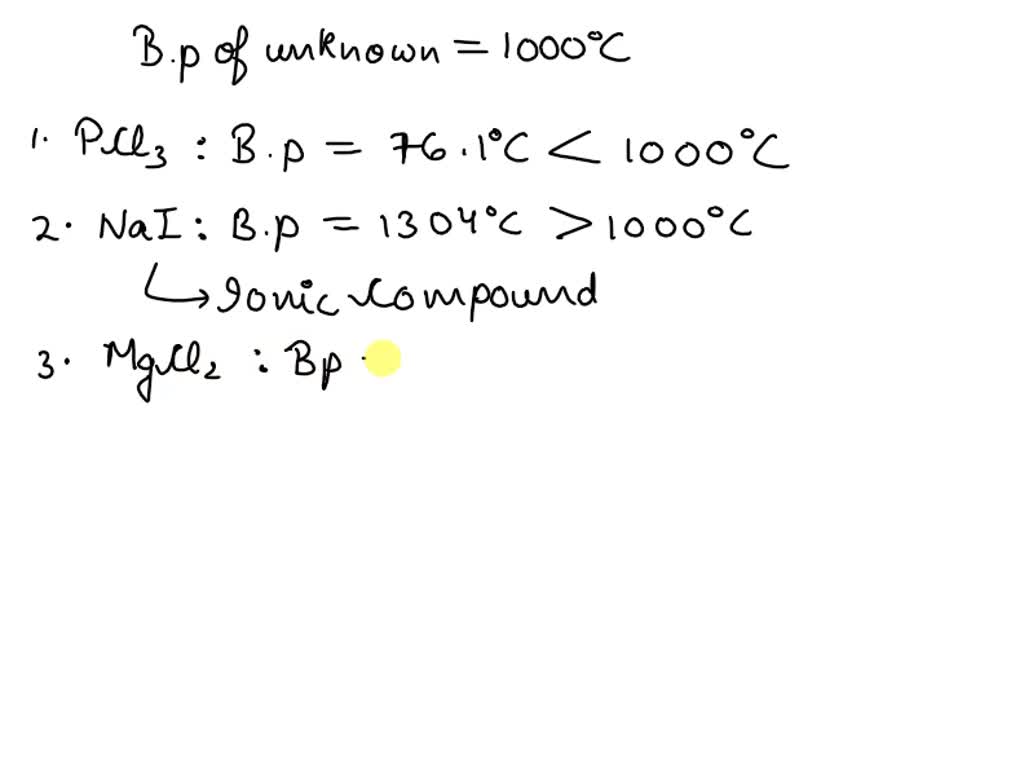 B.p of unknown = 1000°C
1. PCl3 : B.p = 76.1°C < 1000°C
2. NaI : B.p = 1304°C > 1000°C
↳ Ionic Compound
3. MgCl2 : Bp